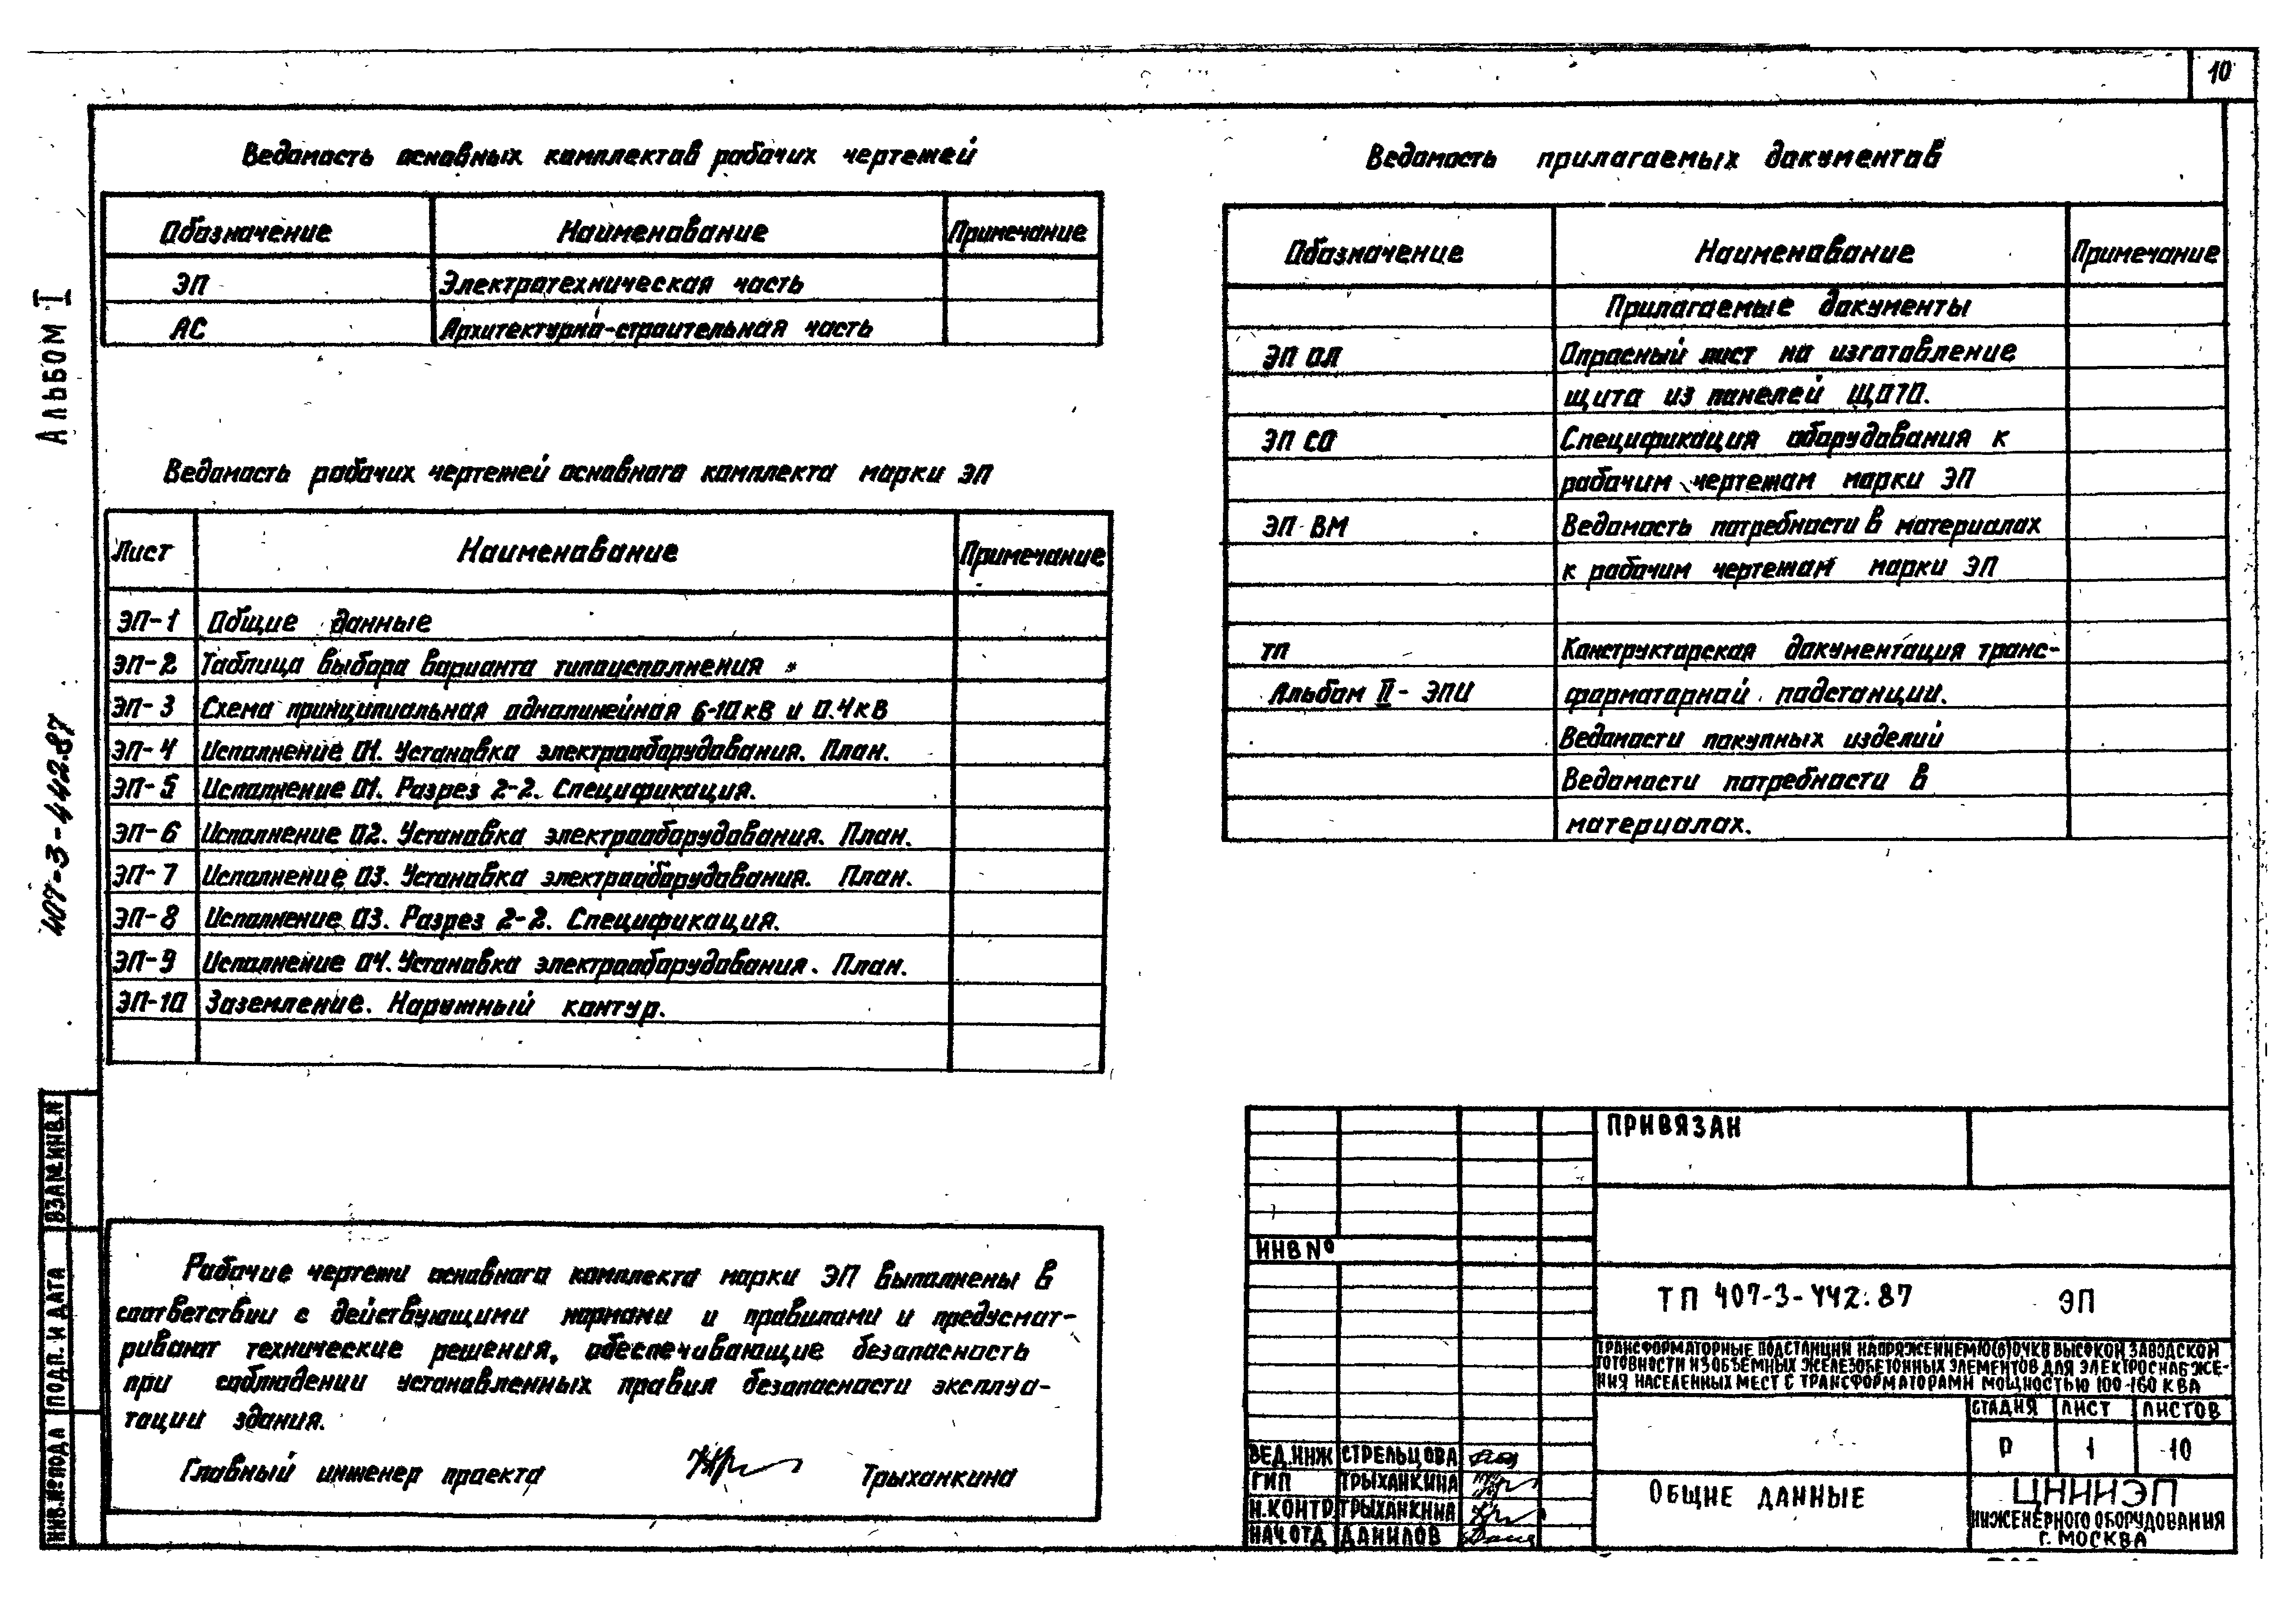 10
Ведомость основных комплектов рабочих чертежей
Обозначение Наименование Примечание
ЭП Электротехническая часть
АС Архитектурно-строительная часть
Ведомость рабочих чертежей основного комплекта марки ЭП
Лист Наименование Примечание
ЭП-1 Общие данные
ЭП-2 Таблица выбора варианта типоисполнения
ЭП-3 Схема принципиальная однолинейная 6-10 кВ и 0.4 кВ
ЭП-4 Исполнение 01. Установка электрооборудования. План.
ЭП-5 Исполнение 01. Разрез 2-2. Спецификация.
ЭП-6 Исполнение 02. Установка электрооборудования. План.
ЭП-7 Исполнение 03. Установка электрооборудования. План.
ЭП-8 Исполнение 03. Разрез 2-2. Спецификация.
ЭП-9 Исполнение 04. Установка электрооборудования. План.
ЭП-10 Заземление. Наружный контур.
Рабочие чертежи основного комплекта марки ЭП выполнены в
соответствии с действующими нормами и правилами и предусмат-
ривают технические решения, обеспечивающие безопасность
при соблюдении установленных правил безопасности эксплуа-
тации здания.
Главный инженер проекта Трыханкина
Ведомость прилагаемых документов
Обозначение Наименование Примечание
Прилагаемые документы
ЭП ОЛ Опросный лист на изготовление
щита из панелей ЩО70.
ЭП СО Спецификация оборудования к
рабочим чертежам марки ЭП
ЭП ВМ Ведомость потребности в материалах
к рабочим чертежам марки ЭП
ТП Конструкторская документация транс-
Альбом II - ЭПИ форматорной подстанции.
Ведомости покупных изделий
Ведомости потребности в
материалах.
ПРИВЯЗАН
ИНВ №
ТП 407-3-442.87 ЭП
ТРАНСФОРМАТОРНЫЕ ПОДСТАНЦИИ НАПРЯЖЕНИЕМ 10(6)/0,4 КВ ВЫСОКОЙ ЗАВОДСКОЙ
ГОТОВНОСТИ ИЗ ОБЪЕМНЫХ ЖЕЛЕЗОБЕТОННЫХ ЭЛЕМЕНТОВ ДЛЯ ЭЛЕКТРОСНАБЖЕ-
НИЯ НАСЕЛЕННЫХ МЕСТ С ТРАНСФОРМАТОРАМИ МОЩНОСТЬЮ 100-160 КВА
СТАДИЯ ЛИСТ ЛИСТОВ
Р 1 10
ВЕД.ИНЖ СТРЕЛЬЦОВА
ГИП ТРЫХАНКИНА
Н.КОНТР. ТРЫХАНКИНА
НАЧ.ОТД ДАНИЛОВ
ОБЩИЕ ДАННЫЕ
ЦНИИЭП
ИНЖЕНЕРНОГО ОБОРУДОВАНИЯ
Г. МОСКВА
АЛЬБОМ I
407-3-442.87
ВЗАМ.ИНВ.N
ПОДП. И ДАТА
ИНВ.№ ПОДЛ